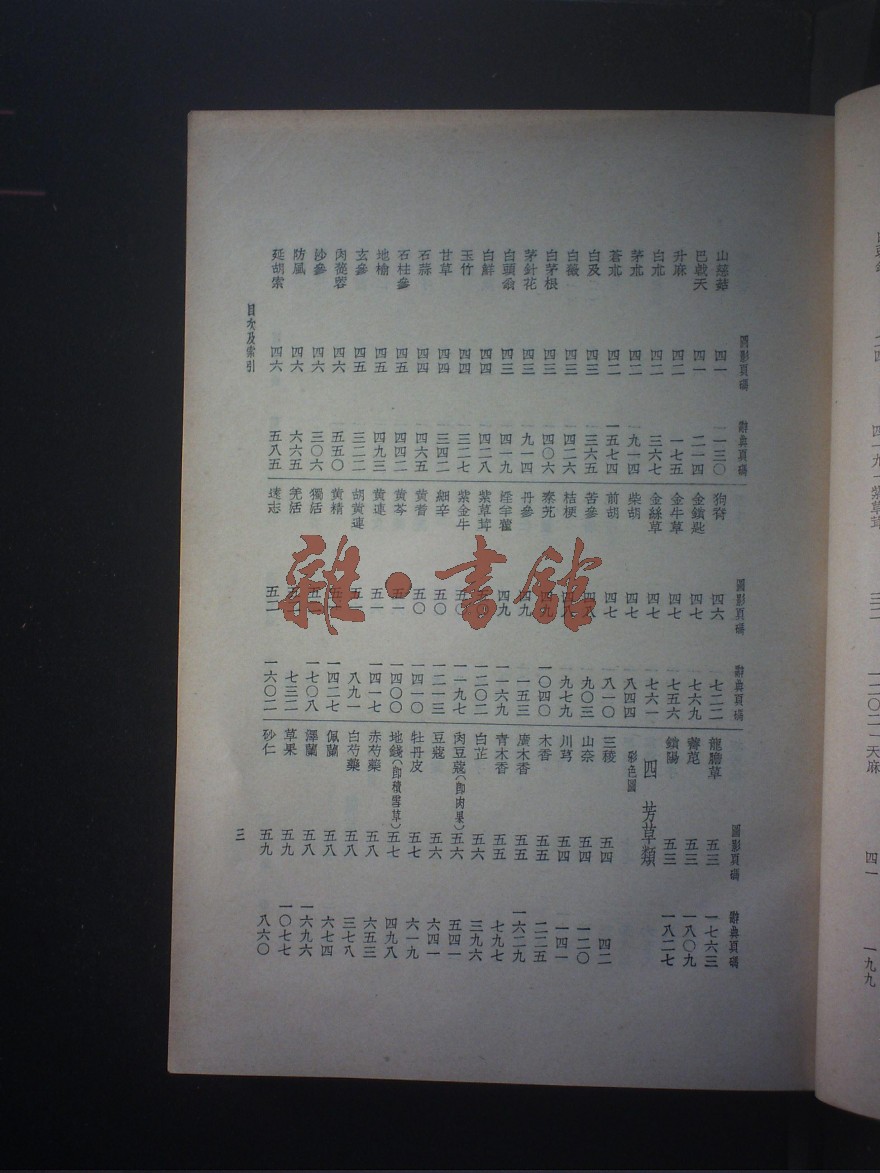 圖影頁碼　辭典頁碼
山慈菇　四一　一三〇
巴戟天　四一　二一四
升麻　四二　一七五
白朮　四二　三六七
茅朮　四二　九一四
蒼朮　四二　一五七四
白及　四三　三六五
白薇　四三　四二六
白茅根　四三　四〇六
茅針花　四三　九一四
白頭翁　四三　四一九
白鮮　四四　四二八
玉竹　四四　三二七
甘草　四四　三四二
石蒜　四四　四六五
石柱參　四五　四四二
地榆　四五　四九三
玄參　四五　三二二
肉蓯蓉　四六　五五〇
沙參　四六　三〇六
防風　四六　六六五
延胡索　四六　五八五
圖影頁碼　辭典頁碼
狗脊　四六　七二二
金鎖匙　四七　七六九
金牛草　四七　七五六
金絲草　四七　七六一
柴胡　四七　八四四
前胡　四七　八一〇
苦參　四八　九〇三
桔梗　四八　九七九
秦艽　四九　一〇四〇
丹參　四九　一五三
淫羊藿　四九　一一六九
紫草茸　一二〇二
紫金牛　五〇　一一九七
細辛　五〇　一二一三
黃耆　五〇　一四一〇
黃芩　五一　一四〇〇
黃連　五一　一四一七
胡黃連　五一　八九一
黃精　一四二七
獨活　一七〇八
羌活　七三二
遠志　五二　一六〇二
圖影頁碼　辭典頁碼
龍膽草　五三　一七六三
薺苨　五三　一八〇九
鎖陽　五三　一八二七
四　芳草類
彩色圖
三稜　五四　四二
山奈　五四　一二〇
川芎　五四　一四一
木香　五五　二二五
廣木香　五五　一六二九
青木香　五五　七九七
白芷　五六　三九六
肉豆蔻(即肉果)　五六　五四一
豆蔻　五六　六四一
牡丹皮　五七　六一九
地錢(即積雪草)　五七　四九八
赤芍藥　五八　六五三
白芍藥　五八　三七八
佩蘭　五八　六七四
澤蘭　五八　一六九六
草果　五九　一〇七七
砂仁　五九　八六〇
目次及索引
三
雜·書館